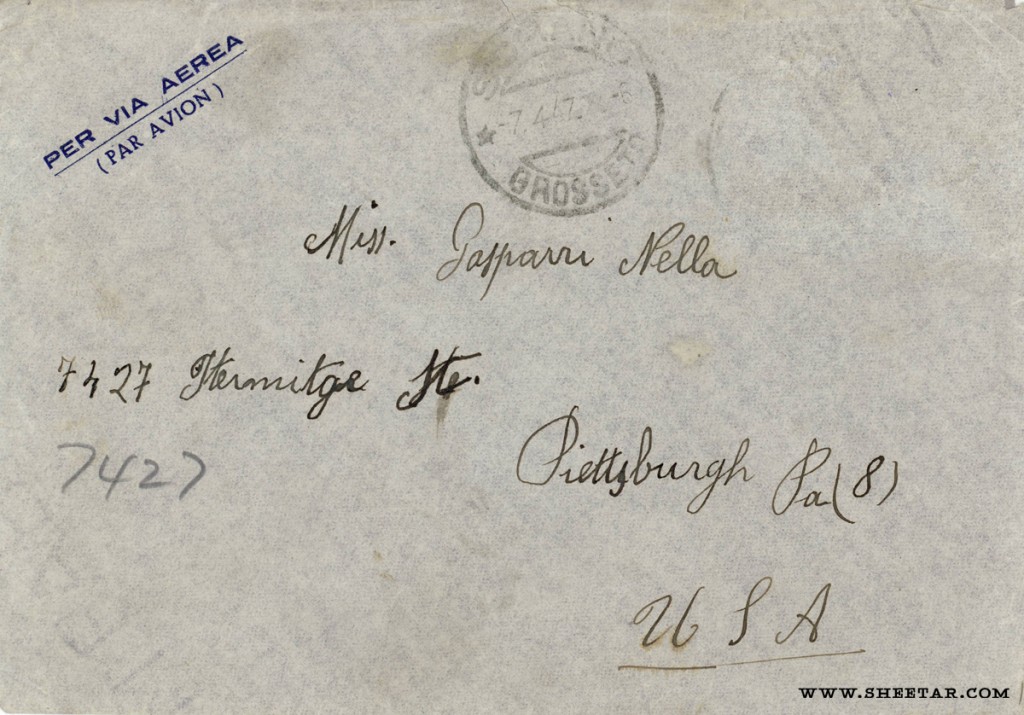 PER VIA AEREA
(PAR AVION)
-7.4.47
GROSSETO
Miss. Gasparri Nella
7427 Hermitge Ste.
7427
Piettsburgh Pa (8)
U S A
WWW.SHEETAR.COM